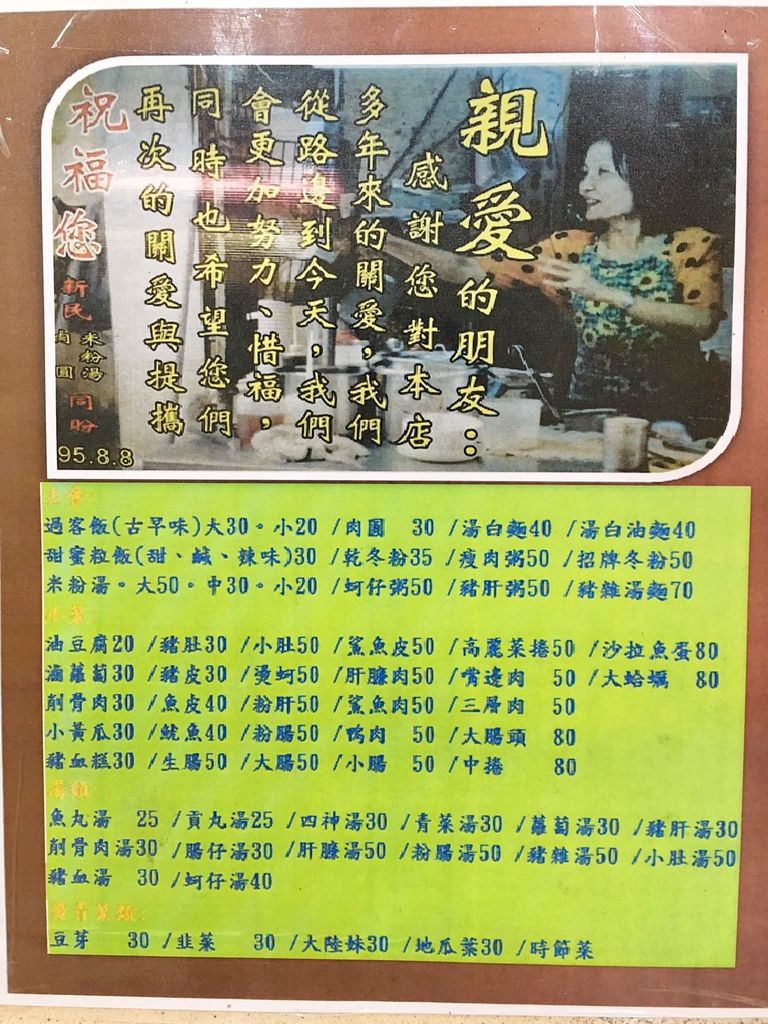 親愛的朋友：
感謝您對本店
多年來的關愛，我們
從路邊到今天，我們
會更加努力、惜福，
同時也希望您們
再次的關愛與提攜
祝福您
新民
米粉湯
肉圓
同盼
95.8.8
主食:
過客飯(古早味)大30。小20 /肉圓 30 /湯白麵40 /湯白油麵40
甜蜜粒飯(甜、鹹、辣味)30 /乾冬粉35 /瘦肉粥50 /招牌冬粉50
米粉湯。大50。中30。小20 /蚵仔粥50 /豬肝粥50 /豬雜湯麵70
小菜:
油豆腐20 /豬肚30 /小肚50 /鯊魚皮50 /高麗菜捲50 /沙拉魚蛋80
滷蘿蔔30 /豬皮30 /燙蚵50 /肝臁肉50 /嘴邊肉 50 /大蛤蠣 80
削骨肉30 /魚皮40 /粉肝50 /鯊魚肉50 /三層肉 50
小黃瓜30 /魷魚40 /粉腸50 /鴨肉 50 /大腸頭 80
豬血糕30 /生腸50 /大腸50 /小腸 50 /中捲 80
湯類
魚丸湯 25 /貢丸湯25 /四神湯30 /青菜湯30 /蘿蔔湯30 /豬肝湯30
削骨肉湯30 /腸仔湯30 /肝臁湯50 /粉腸湯50 /豬雜湯50 /小肚湯50
豬血湯 30 /蚵仔湯40
燙青菜類:
豆芽 30 /韭菜 30 /大陸妹30 /地瓜葉30 /時節菜